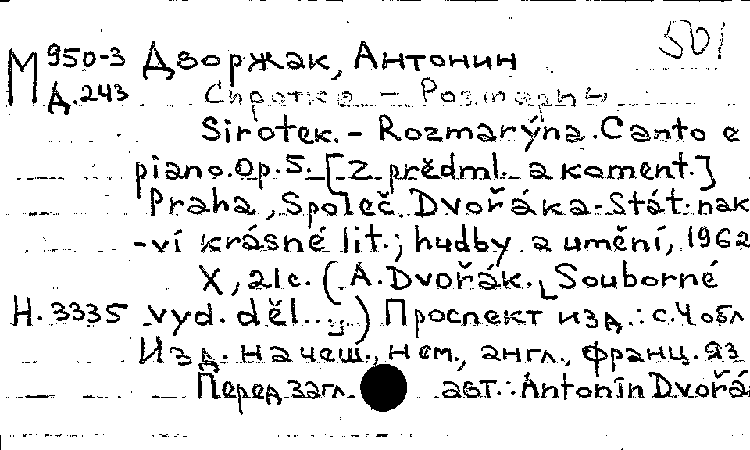 501
М 950-3 Дворжак, Антонин
Д.243 Сиротка - Розмарин
Sirotek. - Rozmarýna. Canto e
piano. Op. 5. [Z předml. a koment.]
Praha, Společ. Dvořáka - Stát. nak
-ví krásné lit.; hudby a umění, 1962
X, 21 с. (A. Dvořák. Souborné
Н. 3335 vyd. děl...) Проспект изд.: с. 4 обл
Изд. на чеш., нем., англ., франц. яз
Перед загл. авт.: Antonín Dvořá